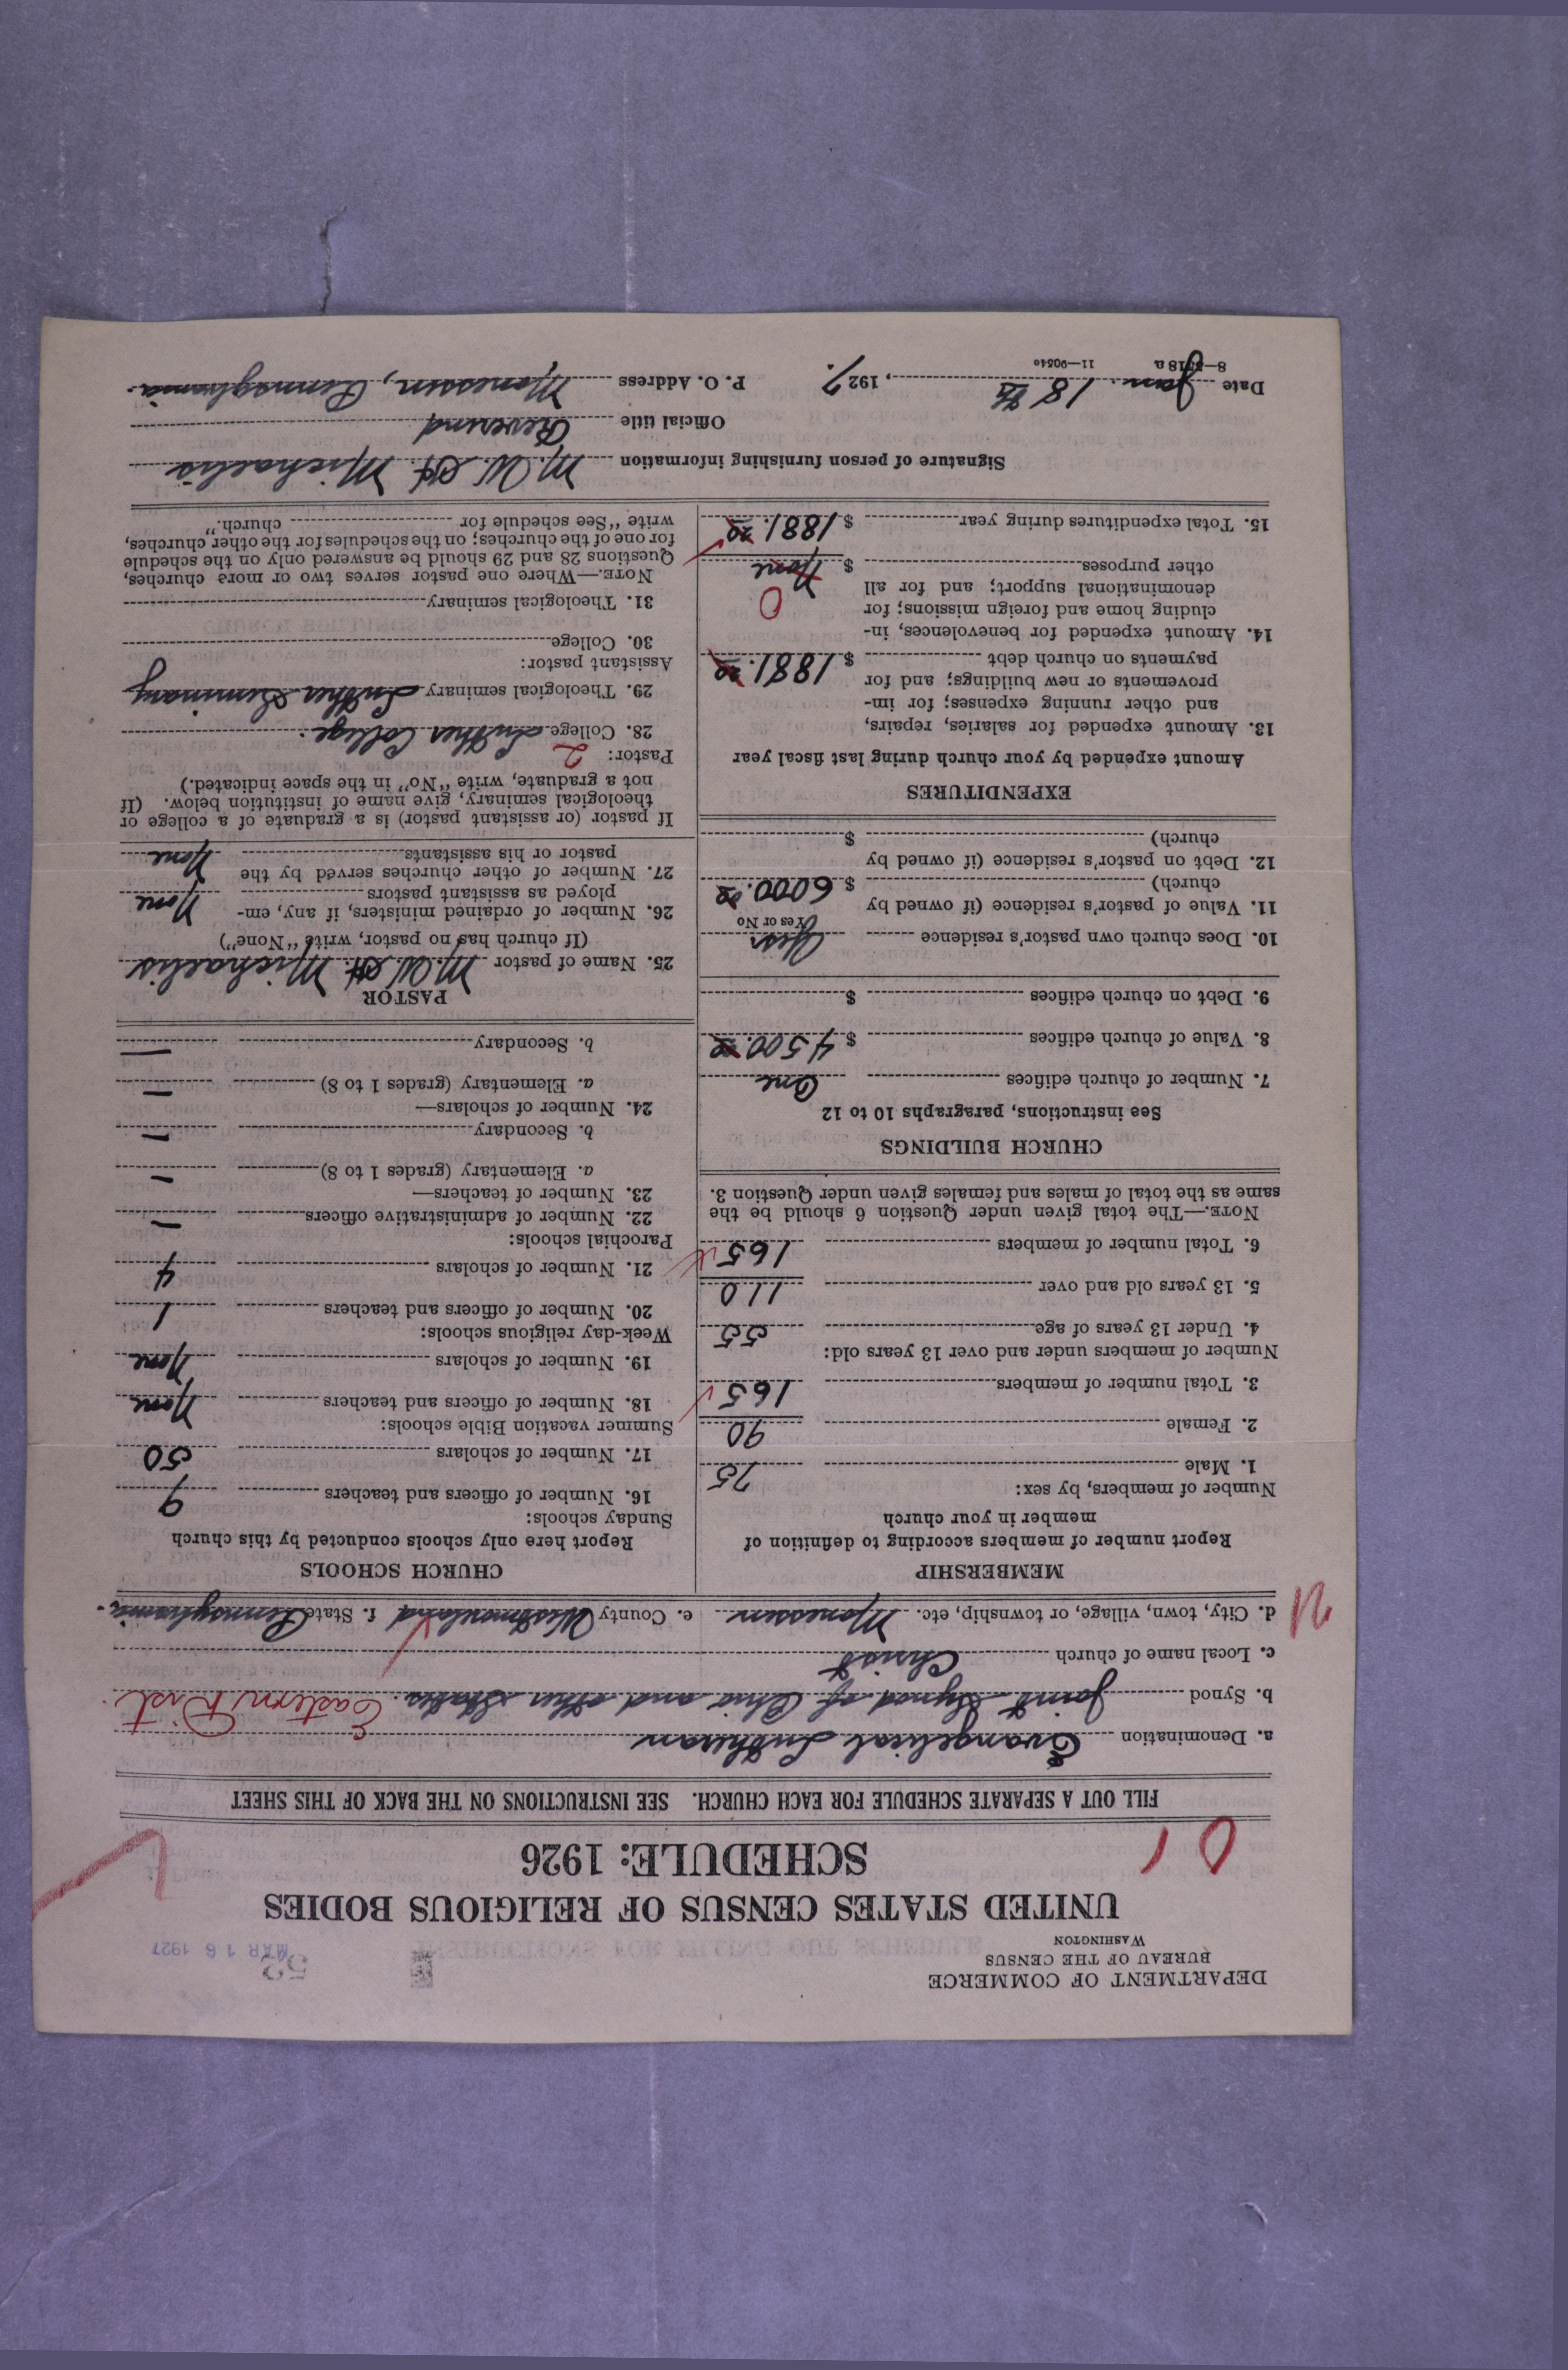 DEPARTMENT OF COMMERCE
BUREAU OF THE CENSUS
WASHINGTON
53
MAR 16 1927
UNITED STATES CENSUS OF RELIGIOUS BODIES
SCHEDULE: 1926
0 1
FILL OUT A SEPARATE SCHEDULE FOR EACH CHURCH. SEE INSTRUCTIONS ON THE BACK OF THIS SHEET
a. Denomination Evangelical Lutheran
b. Synod Joint Synod of Ohio and other States. Eastern Dist.
c. Local name of church Christ
d. City, town, village, or township, etc. Monessen e. County Westmoreland f. State Pennsylvania.
MEMBERSHIP
Report number of members according to definition of
member in your church
Number of members, by sex:
1. Male 75
2. Female 90
3. Total number of members 165
Number of members under and over 13 years old:
4. Under 13 years of age 55
5. 13 years old and over 110
6. Total number of members 165
NOTE.—The total given under Question 6 should be the
same as the total of males and females given under Question 3.
CHURCH BUILDINGS
See instructions, paragraphs 10 to 12
7. Number of church edifices One
8. Value of church edifices $ 4500.00
9. Debt on church edifices $
10. Does church own pastor's residence Yes
Yes or No
11. Value of pastor's residence (if owned by
church) $ 6000.00
12. Debt on pastor's residence (if owned by
church) $
EXPENDITURES
Amount expended by your church during last fiscal year
13. Amount expended for salaries, repairs,
and other running expenses; for im-
provements or new buildings; and for
payments on church debt $ 1881.22
14. Amount expended for benevolences, in-
cluding home and foreign missions; for
denominational support; and for all
other purposes $ None 0
15. Total expenditures during year $ 1881.22
CHURCH SCHOOLS
Report here only schools conducted by this church
Sunday schools:
16. Number of officers and teachers 9
17. Number of scholars 50
Summer vacation Bible schools:
18. Number of officers and teachers None
19. Number of scholars None
Week-day religious schools:
20. Number of officers and teachers 1
21. Number of scholars 4
Parochial schools:
22. Number of administrative officers —
23. Number of teachers—
a. Elementary (grades 1 to 8) —
b. Secondary —
24. Number of scholars—
a. Elementary (grades 1 to 8) —
b. Secondary —
PASTOR
25. Name of pastor M. W. H. Michaelis
(If church has no pastor, write "None")
26. Number of ordained ministers, if any, em-
ployed as assistant pastors None
27. Number of other churches served by the
pastor or his assistants None
If pastor (or assistant pastor) is a graduate of a college or
theological seminary, give name of institution below. (If
not a graduate, write "No" in the space indicated.)
Pastor: 2
28. College Luther College.
29. Theological seminary Luther Seminary
Assistant pastor:
30. College
31. Theological seminary
NOTE.—Where one pastor serves two or more churches,
Questions 28 and 29 should be answered only on the schedule
for one of the churches; on the schedules for the other churches,
write "See schedule for church."
Signature of person furnishing information M. W. H. Michaelis
Official title Reverend
Date Jan. 18th, 1927. P. O. Address Monessen, Pennsylvania.
8—5018a 11—9054c